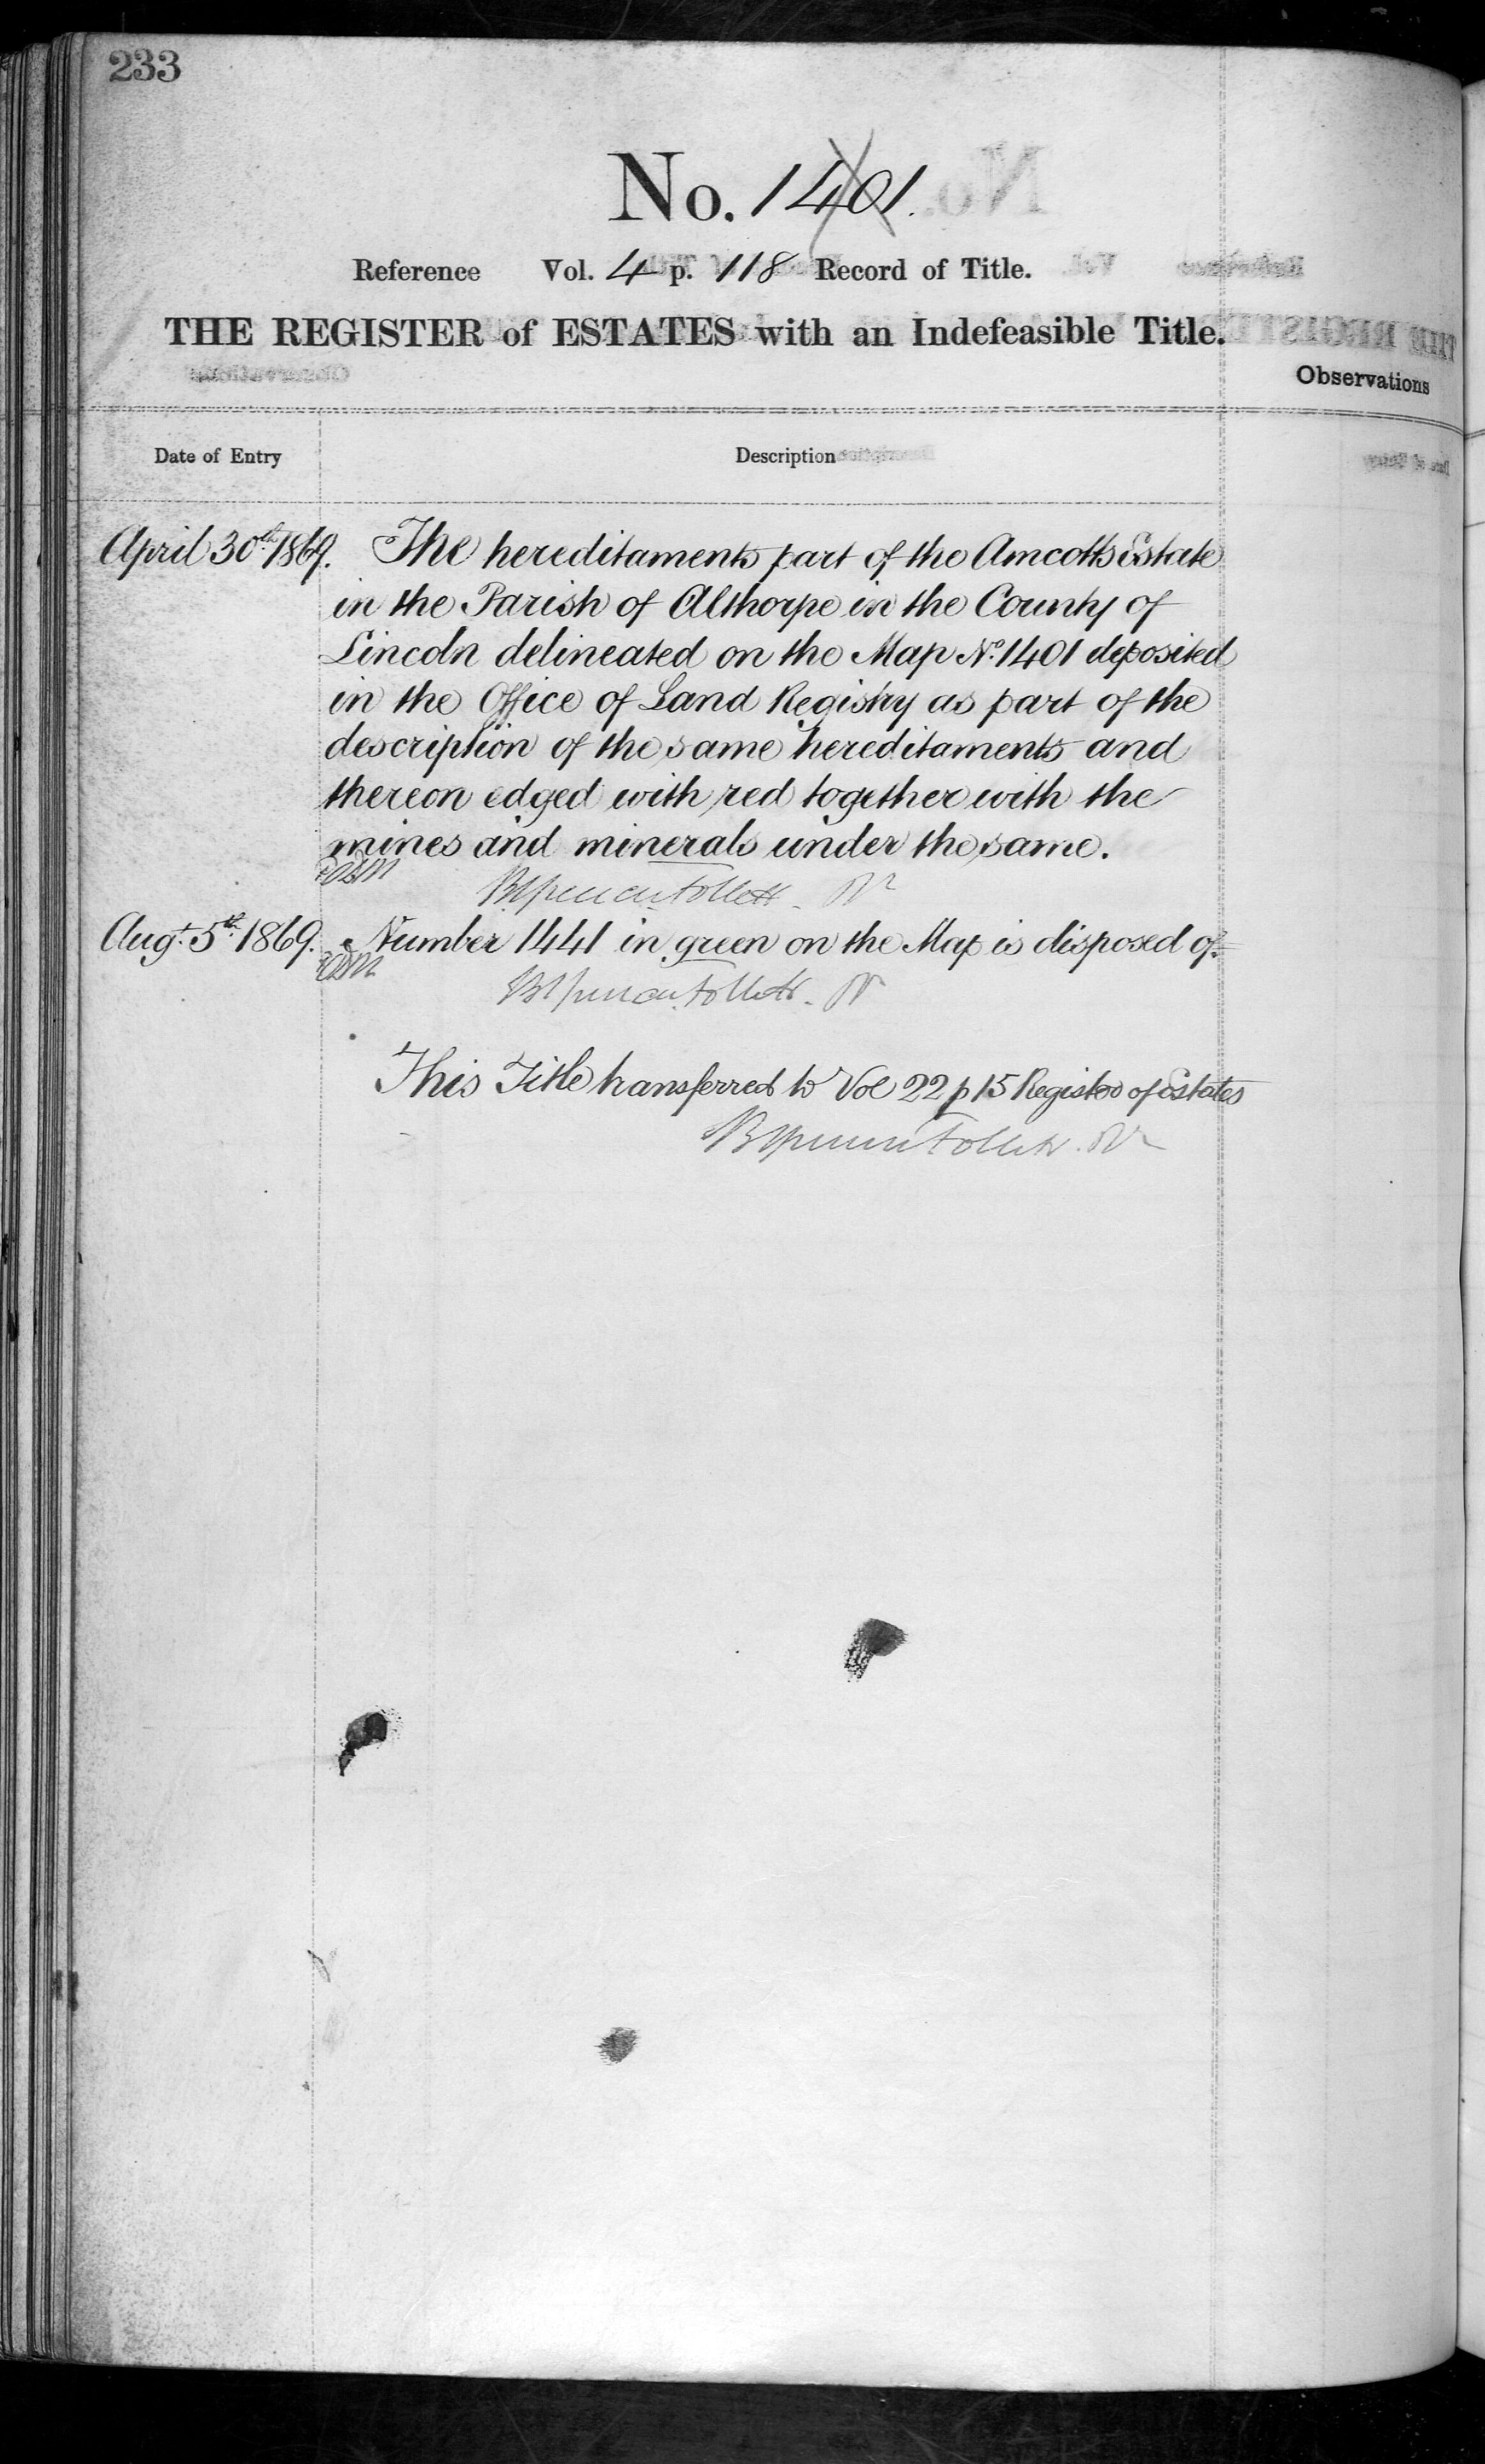 233
No. 1401.
Reference Vol. 4 p. 118 Record of Title.
THE REGISTER of ESTATES with an Indefeasible Title.
Observations
Date of Entry Description
April 30th. 1869. The hereditaments part of the Amcotts Estate
in the Parish of Althorpe in the County of
Lincoln delineated on the Map No. 1401 deposited
in the Office of Land Registry as part of the
description of the same hereditaments and
thereon edged with red together with the
mines and minerals under the same.
Augt. 5th. 1869. Number 1441 in green on the Map is disposed of.
This Title transferred to Vol 22 p 15 Register of Estates